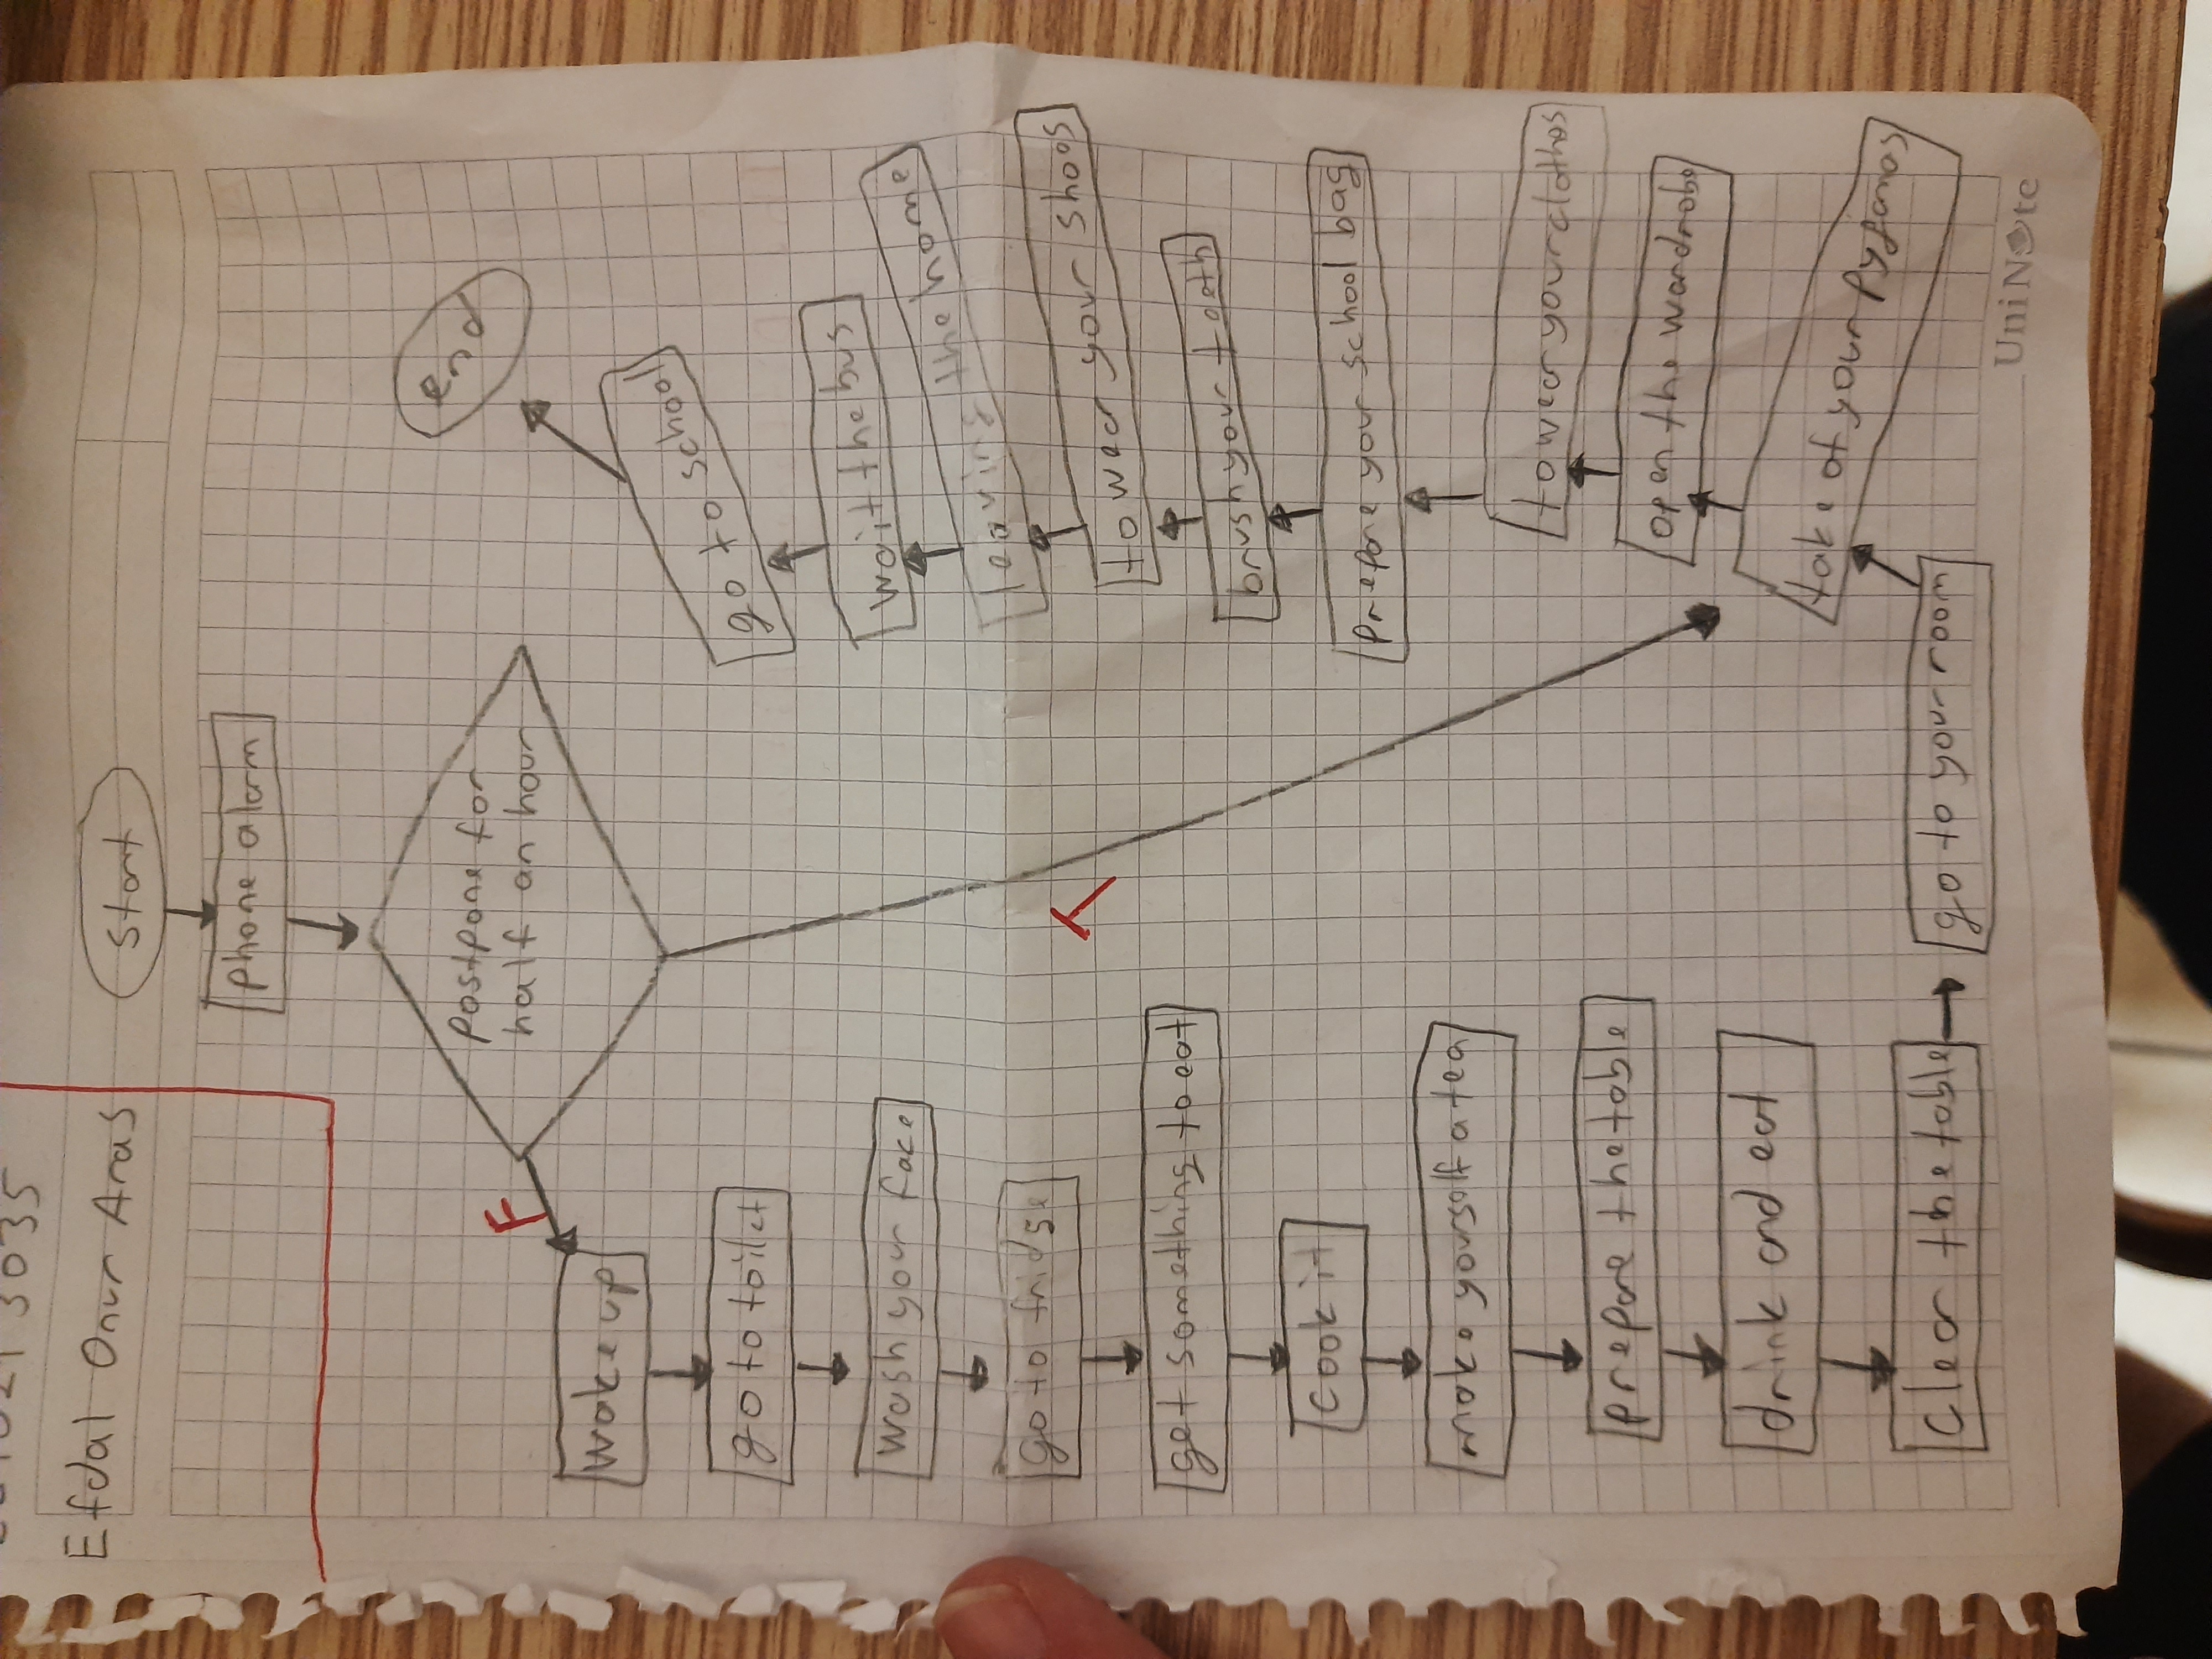 3035
Efdal Onur Aras
start
phone alarm
postpone for
half an hour
F
wake up
go to toilet
wash your face
go to fridge
get something to eat
cook it
make yourself a tea
prepare the table
drink and eat
clear the table
go to your room
T
take of your pyjamas
open the wardrobe
to wear your clothes
prepare your school bag
brush your teeth
to wear your shoes
leaving the home
wait the bus
go to school
end
UniNote